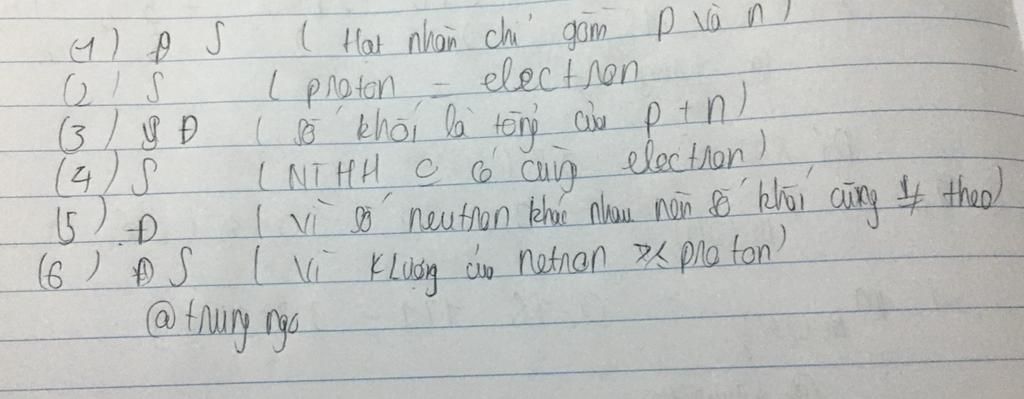 (1) Đ S ( Hạt nhân chỉ gồm p và n)
(2) S ( proton = electron
(3) Đ ( số khối là tổng của p + n)
(4) S ( NTHH có cùng electron)
(5) Đ ( vì số neutron khác nhau nên số khối cũng ≠ theo)
(6) Đ S ( Vì Klượng của netron proton)
@trung ngo